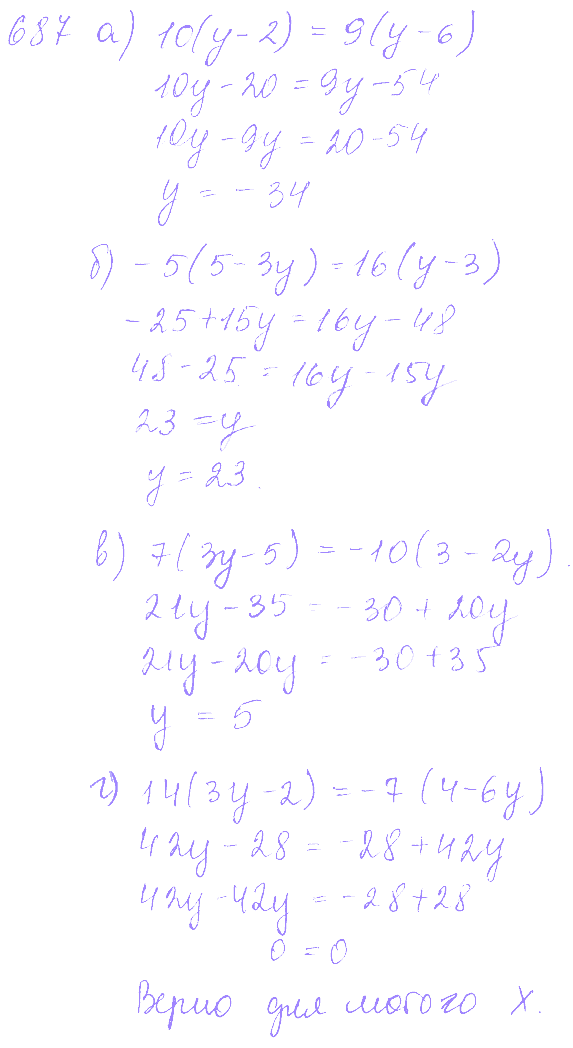 687 а) 10(y-2) = 9(y-6)
10y-20 = 9y-54
10y-9y = 20-54
y = -34
б) -5(5-3y) = 16(y-3)
-25+15y = 16y-48
48-25 = 16y-15y
23 = y
y = 23.
в) 7(3y-5) = -10(3-2y).
21y-35 = -30+20y
21y-20y = -30+35
y = 5
г) 14(3y-2) = -7(4-6y)
42y-28 = -28+42y
42y-42y = -28+28
0 = 0
Верно для любого х.